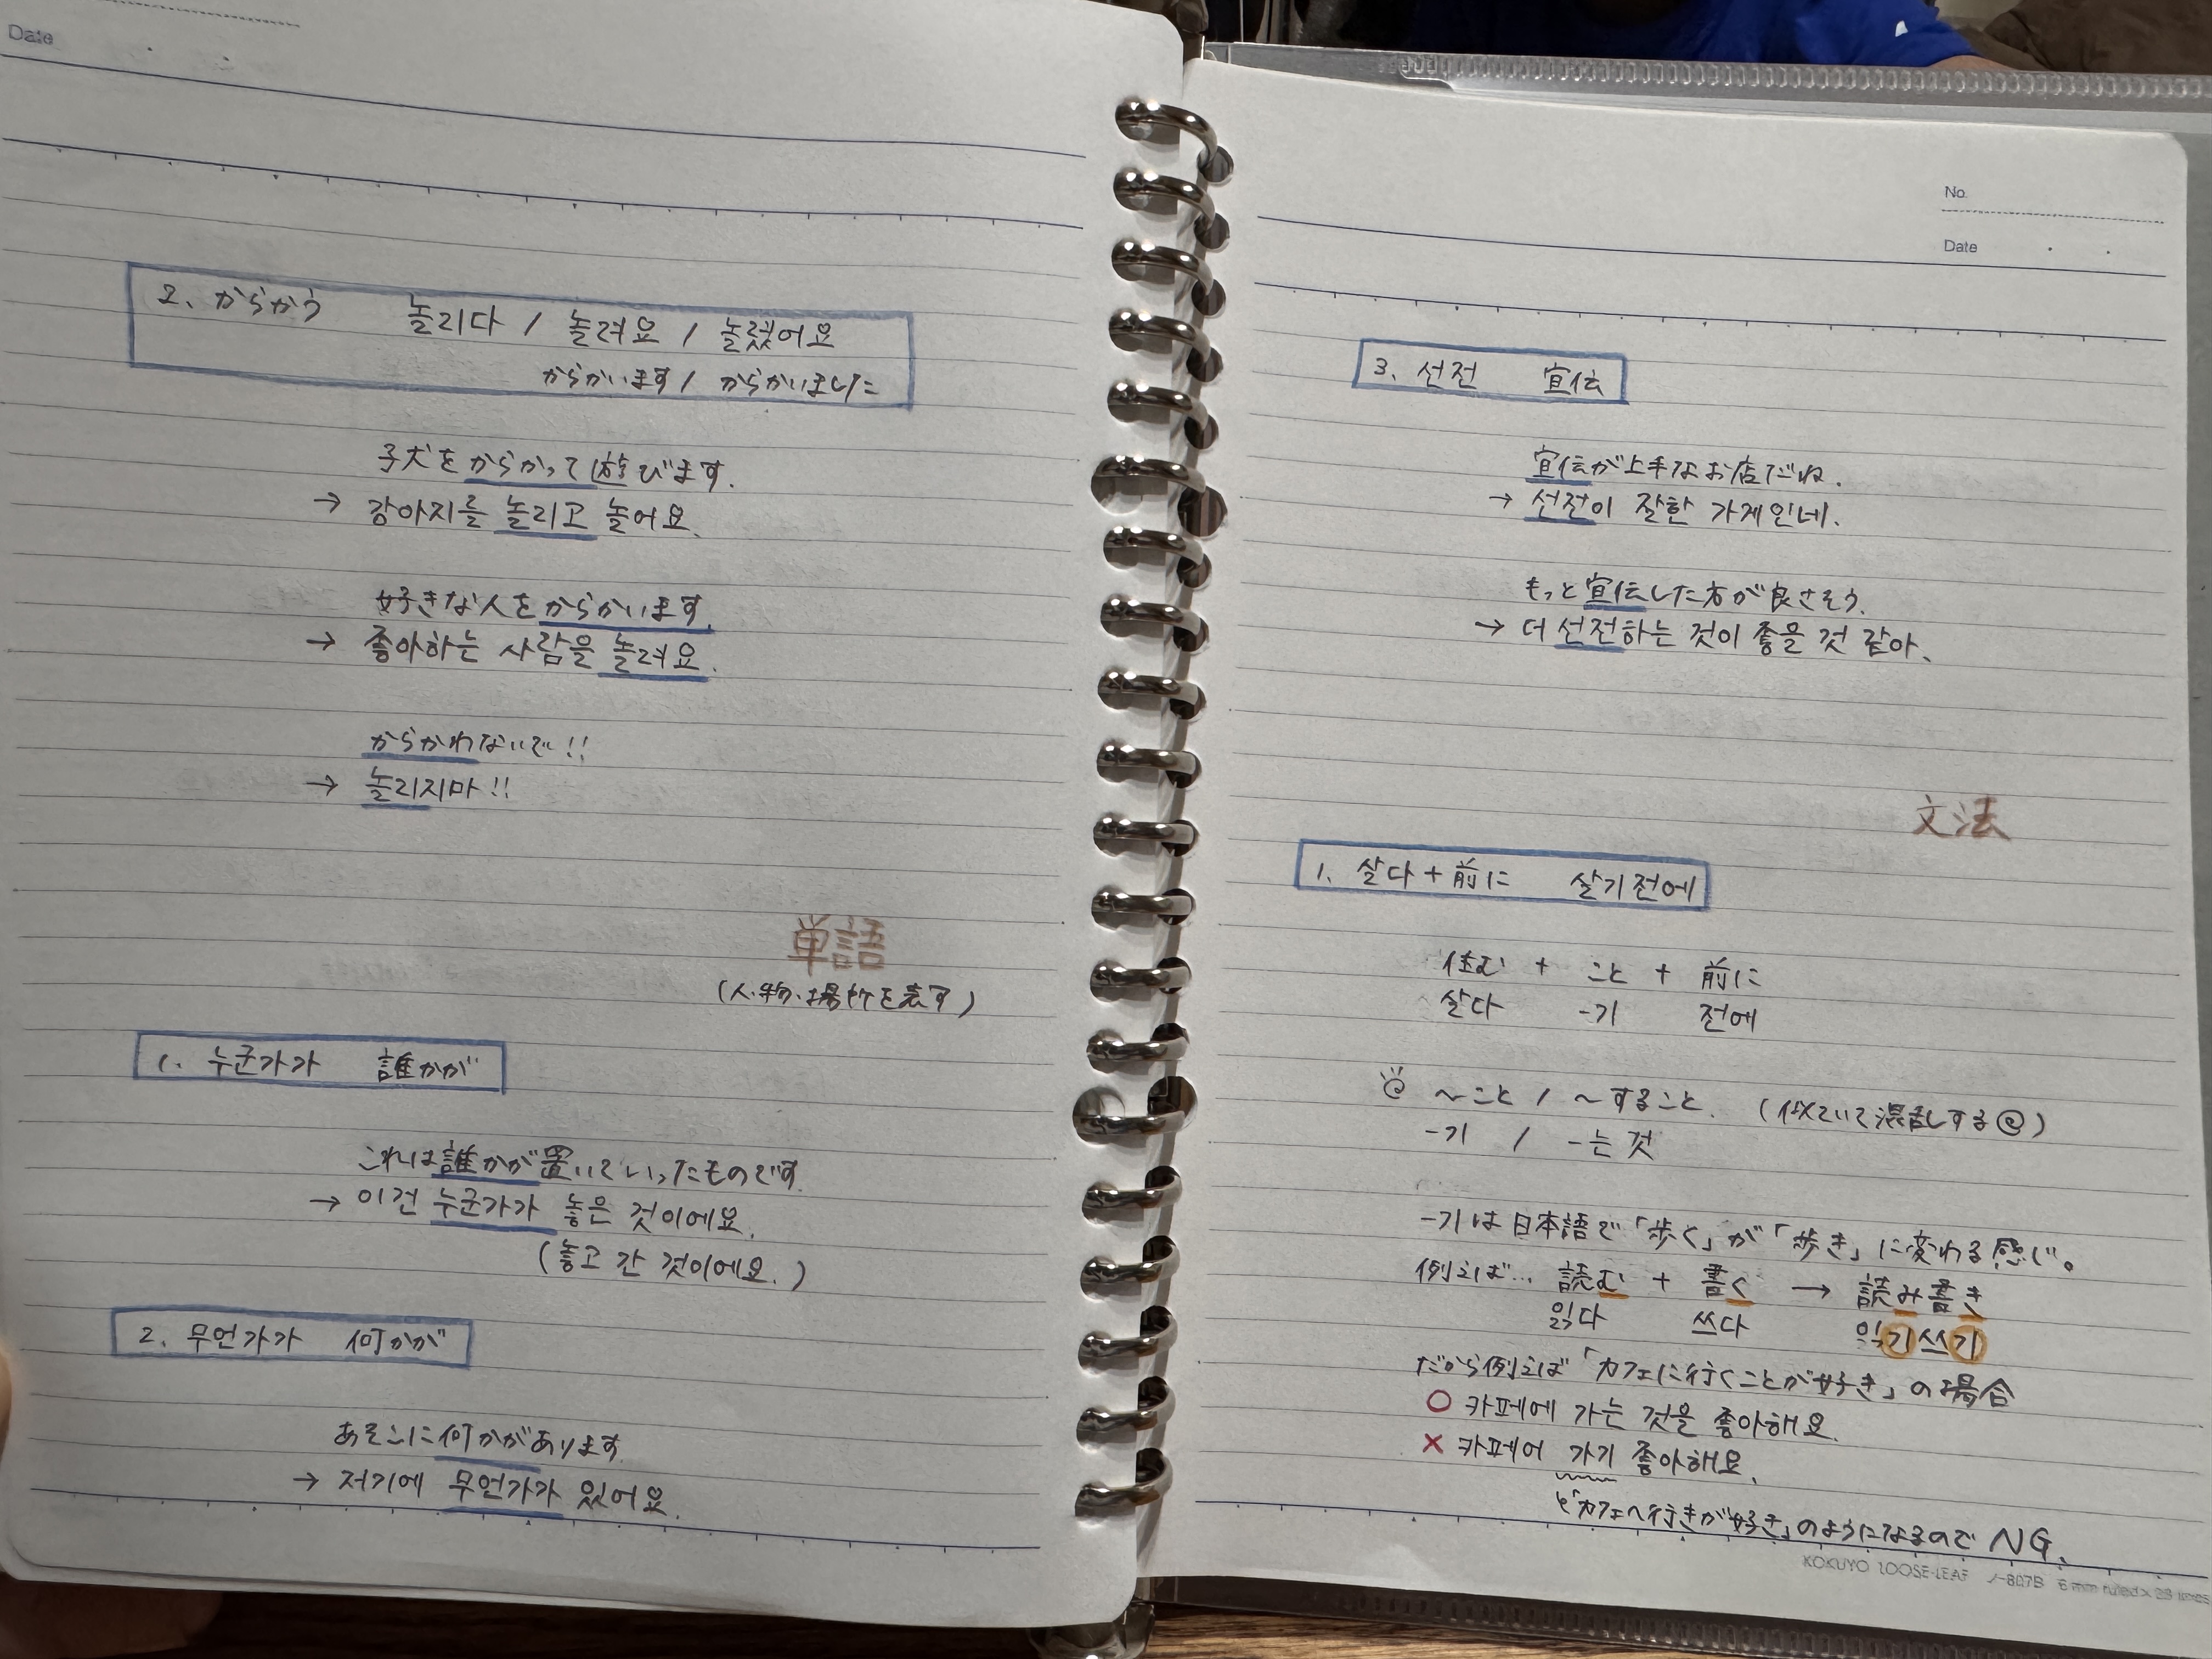 Date
2. からかう 놀리다 / 놀려요 / 놀렸어요
からかいます / からかいました
子犬をからかって遊びます.
→ 강아지를 놀리고 놀어요.
好きな人をからかいます.
→ 좋아하는 사람을 놀려요.
からかわないで!!
→ 놀리지마!!
単語
(人・物・場所を表す)
1. 누군가가 誰かが
これは誰かが置いていったものです.
→ 이건 누군가가 놓은 것이에요.
(놓고 간 것이에요.)
2. 무언가가 何かが
あそこに何かがあります.
→ 저기에 무언가가 있어요.
No.
Date
3. 선전 宣伝
宣伝が上手なお店だね.
→ 선전이 잘한 가게인네.
もっと宣伝した方が良さそう.
→ 더 선전하는 것이 좋을 것 같아.
文法
1. 살다+前に 살기전에
住む + こと + 前に
살다 -기 전에
~こと / ~すること. (似ていて混乱する)
-기 / -는 것
-기は日本語で「歩く」が「歩き」に変わる感じ。
例えば… 読む + 書く → 読み書き
읽다 쓰다 읽기쓰기
だから例えば「カフェに行くことが好き」の場合
○ 카페에 가는 것을 좋아해요.
× 카페어 가기 좋아해요.
「カフェへ行きが好き」のようになるのでNG.
KOKUYO LOOSE-LEAF ノ-807B 6 mm ruled ×